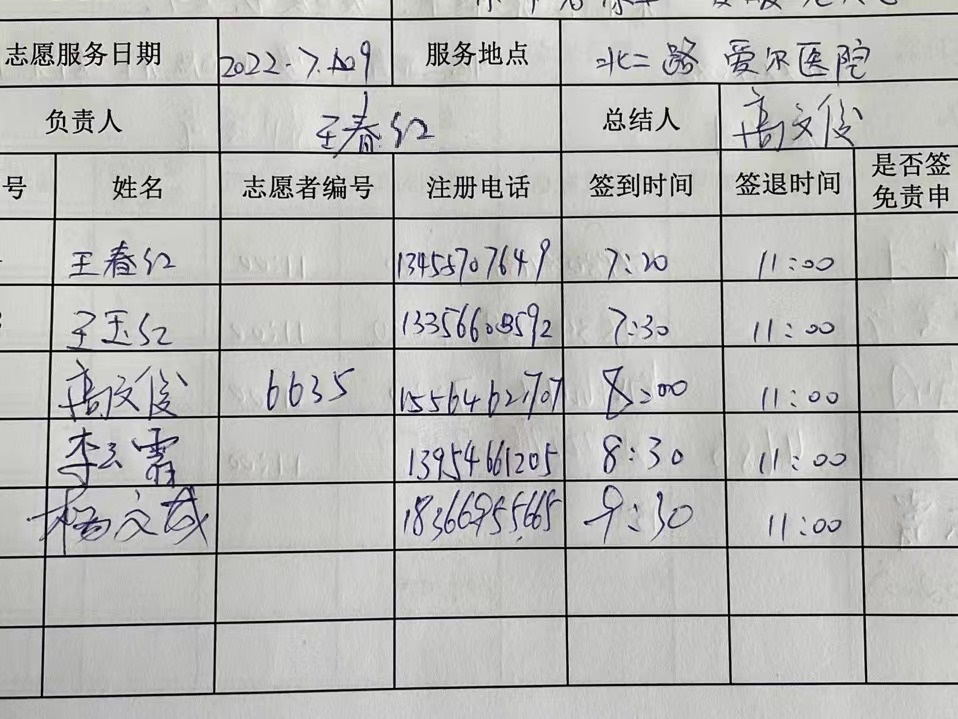 志愿服务日期 2022.7.09 服务地点 北二路 爱尔医院
负责人 王春红 总结人 高文俊
号 姓名 志愿者编号 注册电话 签到时间 签退时间 是否签
免责申
王春红 13455707649 7:20 11:00
王玉红 13356603592 7:30 11:00
高文俊 6635 15564621707 8:00 11:00
李云霞 13954661205 8:30 11:00
杨文成 18366955665 9:30 11:00